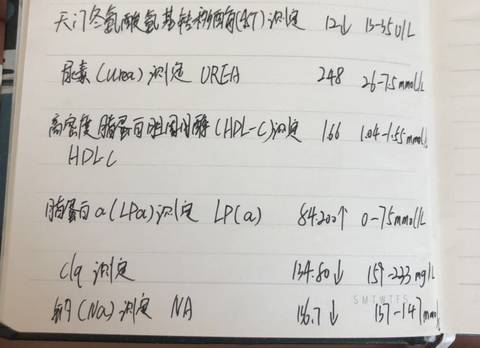 天门冬氨酸氨基转移酶(AST)测定 12↓ 13-35U/L
尿素(Urea)测定 UREA 248 26-75mmol/L
高密度脂蛋白胆固醇(HDL-C)测定 1.66 1.04-1.55mmol/L
HDL-C
脂蛋白a(LPa)测定 LP(a) 84.200↑ 0-75mmol/L
C1q 测定 134.80↓ 159-233mg/L
SMTWTFS
钠(Na)测定 NA 136.7↓ 137-147mmol